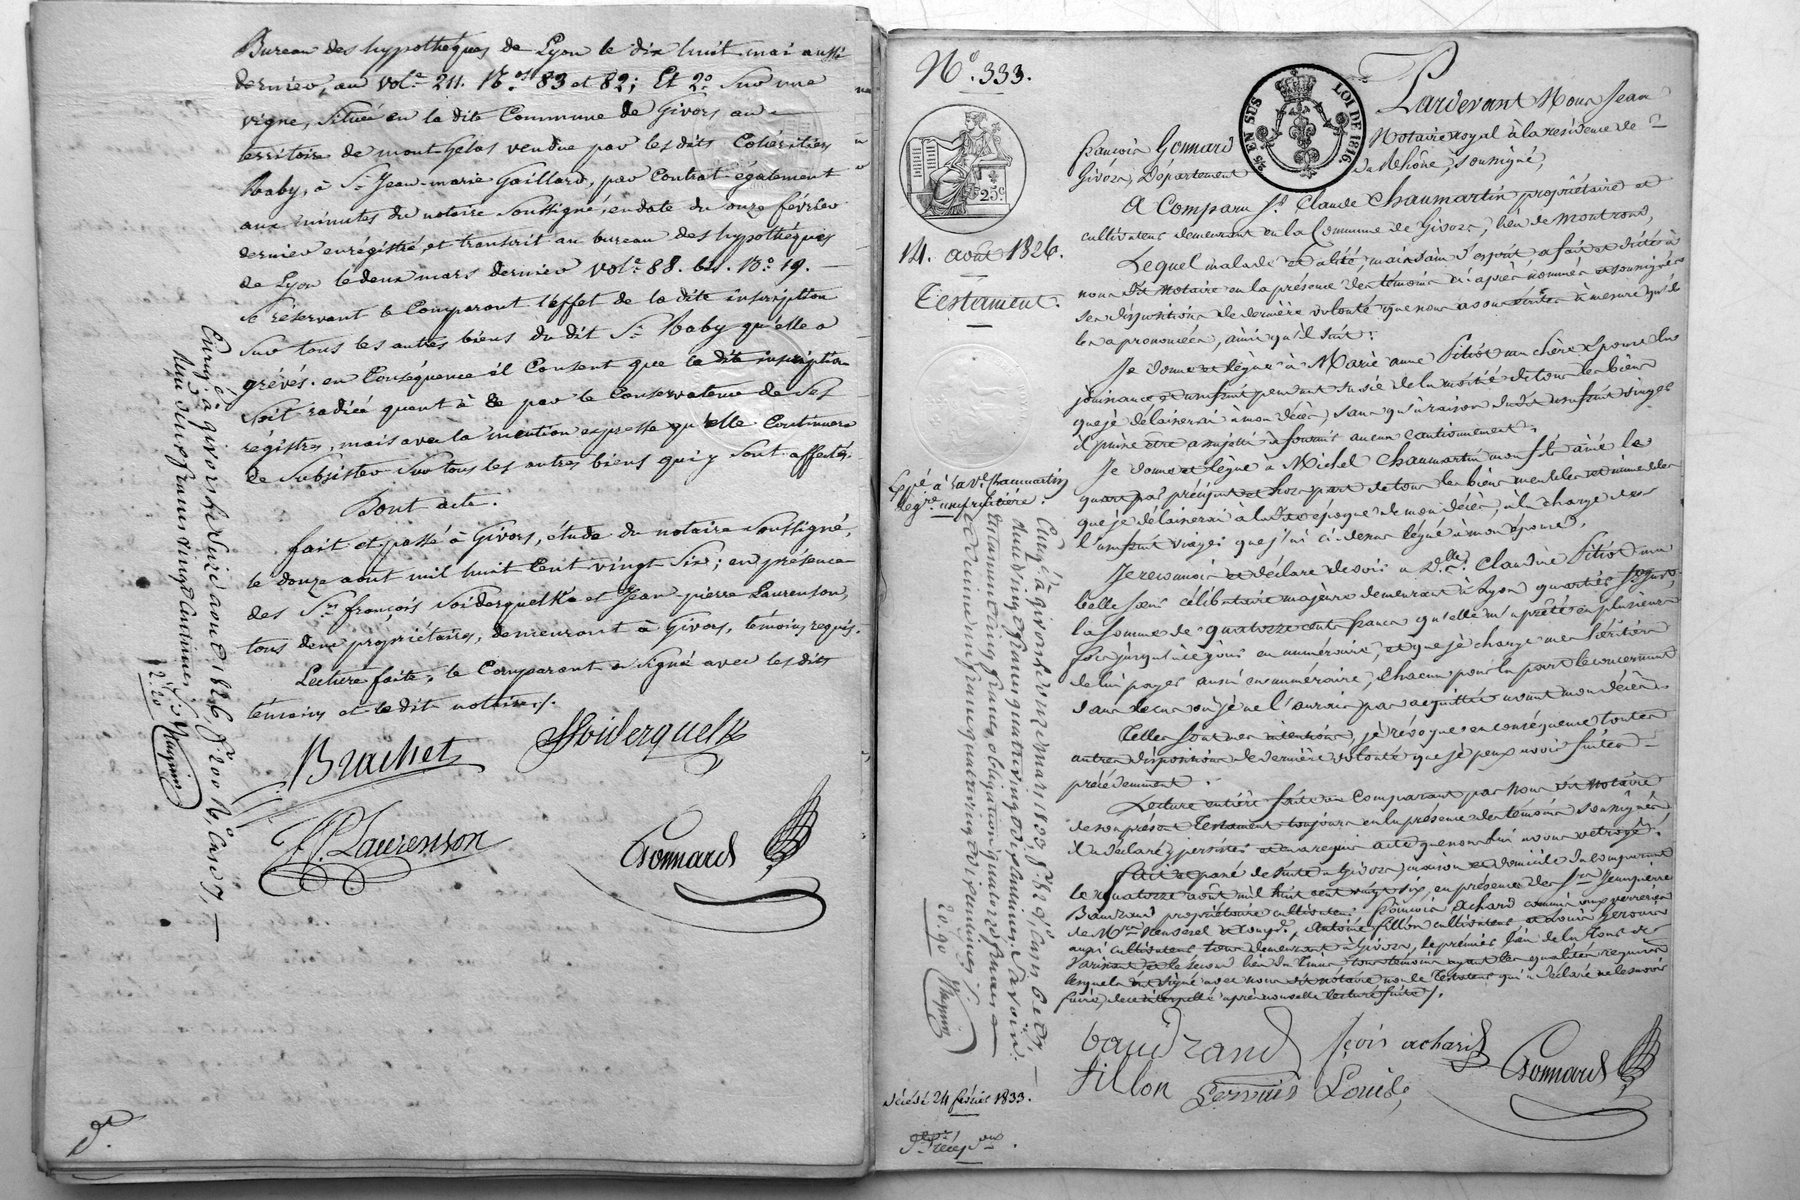 Bureau des hypothèques de Lyon le dix huit mai aussi
dernier, au vol.e 211. N.os 83 et 82; Et 2.o Sur une
vigne, située en la dite Commune de Givors au
territoire de mont Gelas vendue par les dits Cohéritiers
Raby, à S.r Jean-marie Gaillard, par Contrat également
aux minutes du notaire soussigné, en date du onze février
dernier enrégistré, et transcrit au bureau des hypothèques
de Lyon le deux mars dernier vol.e 88. bis. N.o 19. —
Se réservant le Comparant l'effet de la dite inscription
sur tous les autres biens du dit S.r Raby qu'elle a
grévés. en Conséquence il Consent que la dite inscription
soit radiée quant à ce par le Conservateur de ses
régistres, mais avec la mention expresse qu'elle Continuera
de subsister sur tous les autres biens qui y sont affectés.
Dont acte.
fait et passé à Givors, étude du notaire soussigné,
le douze aout mil huit Cent vingt six; en présence
des S.rs françois Soiderquelk et Jean-pierre Laurenson,
tous deux propriétaires, demeurant à Givors, témoins requis.
Lecture faite, le Comparant a signé avec les dits
témoins et le dit notaire /.
Brachet Soiderquelk
J.P. Laurenson Gonnard
Enreg.é à givors le seize aout 1826, f.o 200 R.o Case 7, —
Reçu deux francs vingt Centimes
2.20
N.o 333.
25 c
14. aout 1826.
Testament.
Exp.é à la v.e Chaumartin
lég.re usufruitière.
25 EN SUS LOI DE 1816.
Pardevant Nous Jean
françois Gonnard Notaire royal à la résidence de
Givors, Département du Rhône, soussigné,
A Comparu S.r Claude Chaumartin propriétaire et
cultivateur demeurant en la Commune de Givors, lieu de Montrond,
Lequel malade et alité, mais sain d'esprit a fait et dicté à
nous dit notaire en la présence des témoins ci après nommés et soussignés
ses dispositions de dernière volonté que nous avons écrites à mesure qu'il
les a prononcées, ainsi qu'il suit:
Je donne et lègue à Marie anne Pitiot ma chère épouse la
jouissance et usufruit pendant sa vie de la moitié de tous les biens
que je délaisserai à mon décès, sans qu'à raison du dit usufruit viager
elle puisse être assujettie à fournir aucun cautionnement.
Je donne et lègue à Michel Chaumartin mon fils ainé le
quart par préciput et hors part de tous les biens meubles et immeubles
que je délaisserai à la dite époque de mon décès, à la charge de
l'usufruit viager que j'ai ci-dessus légué à mon épouse.
Je reconnois et déclare devoir à D.elle Claudine Pitiot ma
belle sœur célibataire majeure demeurant à Lyon quartier
la somme de quatorze cents francs qu'elle m'a prêtée en plusieurs
fois jusqu'à ce jour en numéraire, et que je charge mes héritiers
de lui payer aussi en numéraire, chacun pour la part le concernant
dans le cas où je ne l'aurois pas acquittée avant mon décès.
Telles sont mes intentions, je révoque en conséquence toutes
autres dispositions de dernière volonté que je peux avoir faites
précédemment.
Lecture entière faite au Comparant par nous dit notaire
de son présent testament toujours en la présence des témoins soussignés,
il a déclaré y persister et en a requis acte que nous lui avons octroyé.
Fait et passé de suite à Givors, maison et domicile du comparant
le quatorze août mil huit cent vingt six, en présence des S.rs Jean pierre
Baudrand propriétaire cultivateur, françois Achard commis aux verreries
de M.rs Neuvesel et comp.e, Antoine fillon cultivateur et Louis Gervais
aussi cultivateur tous demeurant à Givors, le premier lieu de la tour de
Varissan et le second lieu du tous témoins ayant les qualités requises
lesquels ont signé avec nous dit notaire non le testateur qui a déclaré ne le savoir
faire, de ce interpellé après nouvelle lecture faite /.
baudrand f.çois achard
fillon Gervais Louis Gonnard
Enreg.é à givors le onze mars 1833, f.o 112 v.o Cases 6 et 7, —
Reçu cinq francs quatre vingt dix Centimes, Savoir:
testament cinq francs, obligation quatorze francs
et dixième un franc quatre vingt dix centimes
20.90
Décédé 24 février 1833.